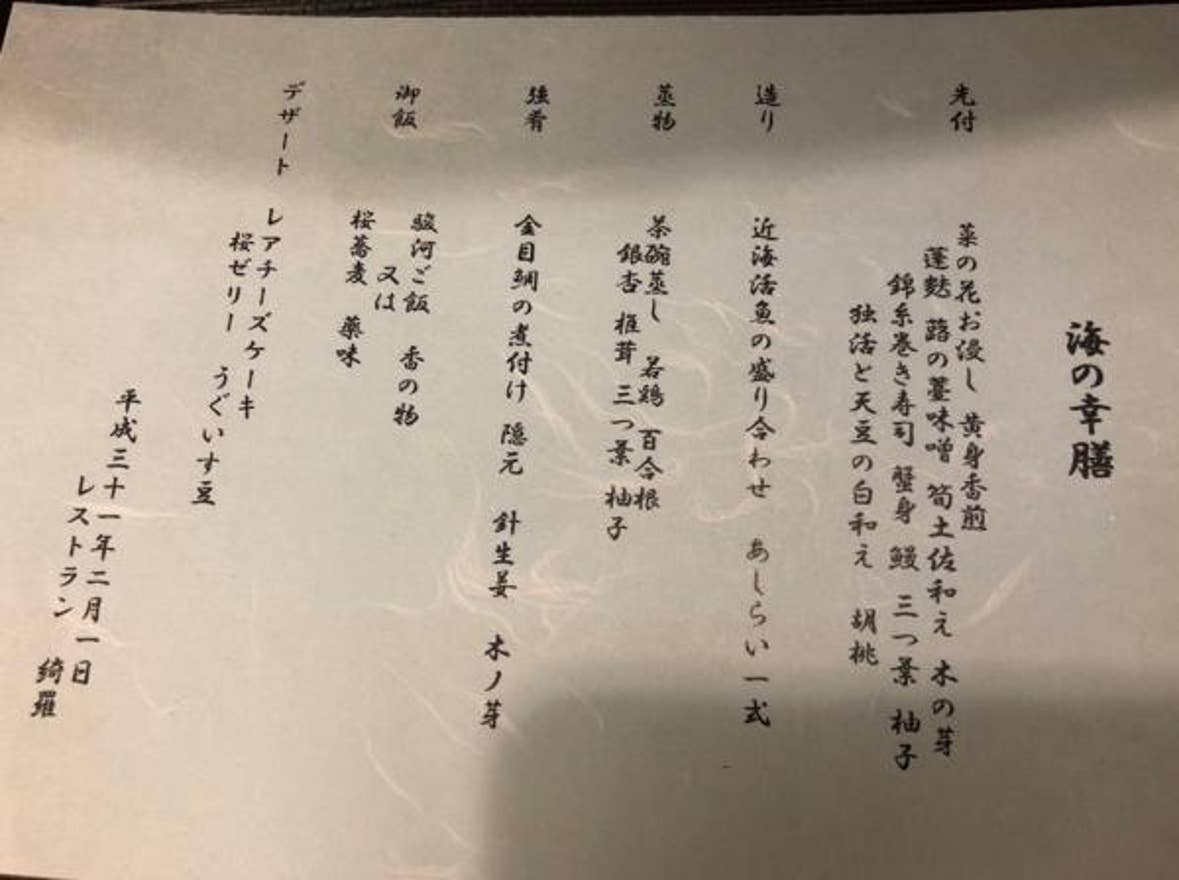 海の幸膳
先付
菜の花お浸し 黄身香煎
蓬麩 蕗の薹味噌 筍土佐和え 木の芽
錦糸巻き寿司 蟹身 鰻 三つ葉 柚子
独活と天豆の白和え 胡桃
造り
近海活魚の盛り合わせ あしらい一式
蒸物
茶碗蒸し 若鶏 百合根
銀杏 椎茸 三つ葉 柚子
強肴
金目鯛の煮付け 隠元 針生姜 木ノ芽
御飯
駿河ご飯 香の物
又は
桜蕎麦 薬味
デザート レアチーズケーキ
桜ゼリー うぐいす豆
平成三十一年二月一日
レストラン 綺羅